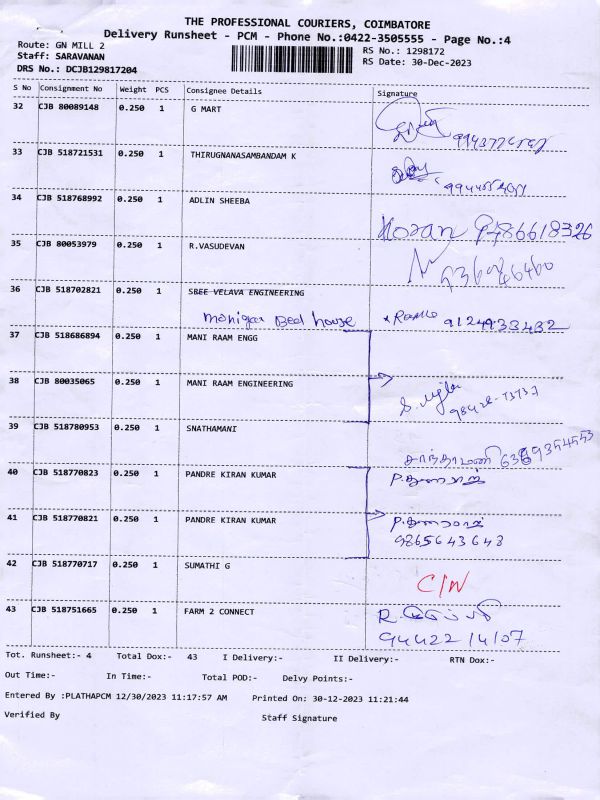 THE PROFESSIONAL COURIERS, COIMBATORE
Delivery Runsheet - PCM - Phone No.:0422-3505555 - Page No.:4
Route: GN MILL 2
Staff: SARAVANAN
DRS No.: DCJB129817204
RS No.: 1298172
RS Date: 30-Dec-2023
S No Consignment No Weight PCS Consignee Details Signature
32 CJB 80089148 0.250 1 G MART
33 CJB 518721531 0.250 1 THIRUGNANASAMBANDAM K
34 CJB 518768992 0.250 1 ADLIN SHEEBA 9486618326
35 CJB 80053979 0.250 1 R.VASUDEVAN
36 CJB 518702821 0.250 1 SREE VELAVA ENGINEERING
Bed house 9124933432
37 CJB 518686894 0.250 1 MANI RAAM ENGG
38 CJB 80035065 0.250 1 MANI RAAM ENGINEERING
39 CJB 518780953 0.250 1 SNATHAMANI
சாந்தாமணி
40 CJB 518770823 0.250 1 PANDRE KIRAN KUMAR
41 CJB 518770821 0.250 1 PANDRE KIRAN KUMAR
9865643643
42 CJB 518770717 0.250 1 SUMATHI G C/N
43 CJB 518751665 0.250 1 FARM 2 CONNECT
Tot. Runsheet:- 4 Total Dox:- 43 I Delivery:- II Delivery:- RTN Dox:-
Out Time:- In Time:- Total POD:- Delvy Points:-
Entered By :PLATHAPCM 12/30/2023 11:17:57 AM Printed On: 30-12-2023 11:21:44
Verified By Staff Signature